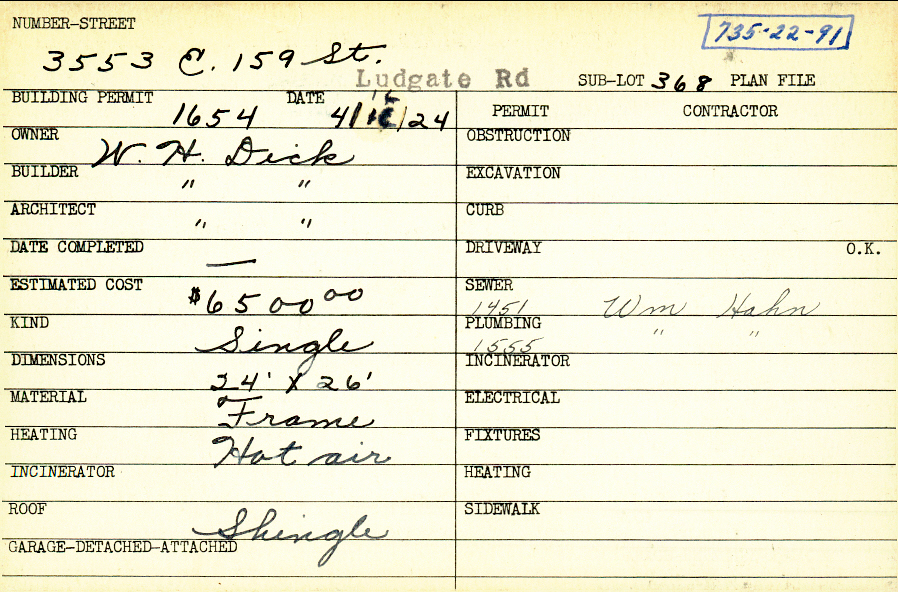 NUMBER-STREET
735-22-91
3553 E. 159 St.
Ludgate Rd
SUB-LOT 368 PLAN FILE
BUILDING PERMIT 1654 DATE 4/ /24
OWNER W. H. Dick
BUILDER " "
ARCHITECT " "
DATE COMPLETED —
ESTIMATED COST $6500 00
KIND Single
DIMENSIONS 24' X 26'
MATERIAL Frame
HEATING Hot air
INCINERATOR
ROOF Shingle
GARAGE-DETACHED-ATTACHED
PERMIT CONTRACTOR
OBSTRUCTION
EXCAVATION
CURB
DRIVEWAY O.K.
SEWER
1451 Wm Hahn
PLUMBING
1555 " "
INCINERATOR
ELECTRICAL
FIXTURES
HEATING
SIDEWALK